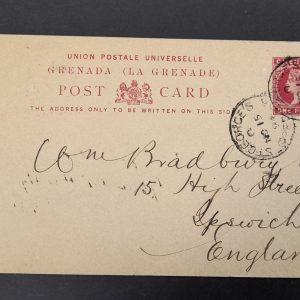 UNION POSTALE UNIVERSELLE
GRENADA (LA GRENADE)
POST CARD
THE ADDRESS ONLY TO BE WRITTEN ON THIS SID
Wm Bradbury
15, High Stree
Ipswich
England